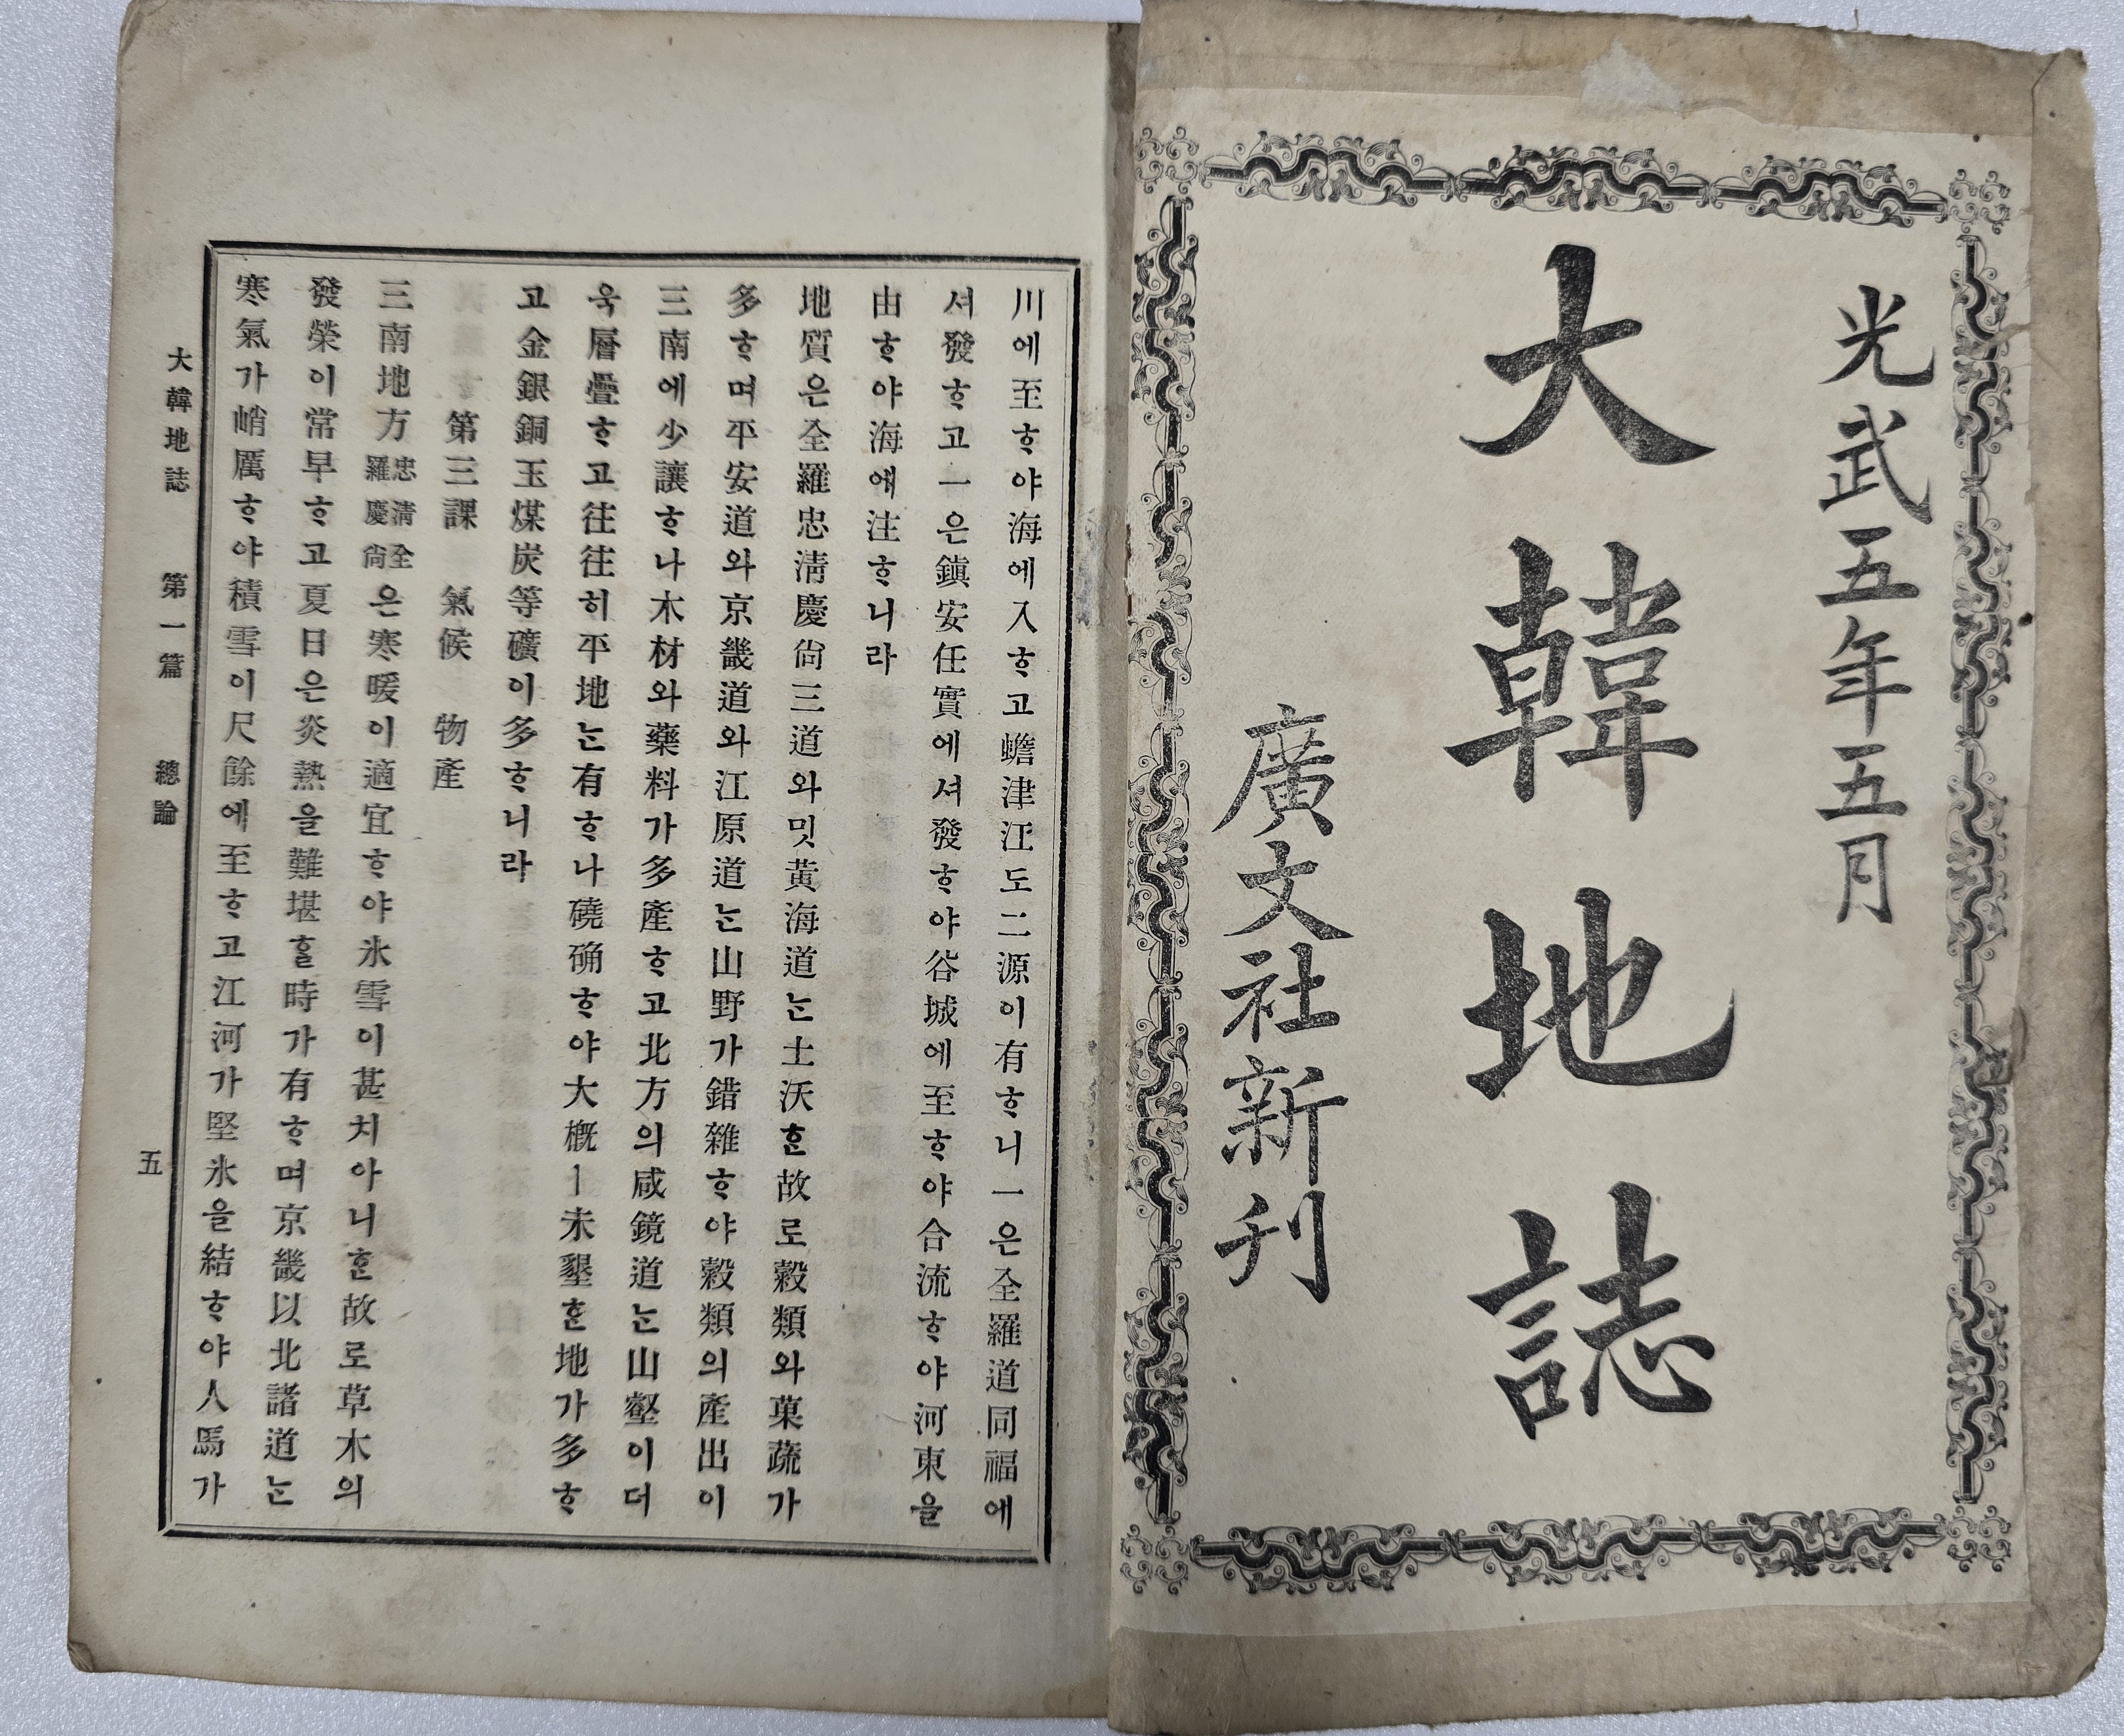 光武五年五月
大韓地誌
廣文社新刊
川에至ᄒᆞ야海에入ᄒᆞ고蟾津江도二源이有ᄒᆞ니一은全羅道同福에
셔發ᄒᆞ고一은鎭安任實에셔發ᄒᆞ야谷城에至ᄒᆞ야合流ᄒᆞ야河東을
由ᄒᆞ야海에注ᄒᆞ니라
地質은全羅忠淸慶尙三道와밋黃海道ᄂᆞᆫ土沃ᄒᆞᆫ故로穀類와菓蔬가
多ᄒᆞ며平安道와京畿道와江原道ᄂᆞᆫ山野가錯雜ᄒᆞ야穀類의產出이
三南에少讓ᄒᆞ나木材와藥料가多產ᄒᆞ고北方의咸鏡道ᄂᆞᆫ山壑이더
욱層疊ᄒᆞ고往往히平地ᄂᆞᆫ有ᄒᆞ나磽确ᄒᆞ야大槪ㅣ未墾ᄒᆞᆫ地가多ᄒᆞ
고金銀銅玉煤炭等礦이多ᄒᆞ니라
第三課 氣候 物產
三南地方忠淸全羅慶尙은寒暖이適宜ᄒᆞ야氷雪이甚치아니ᄒᆞᆫ故로草木의
發榮이常早ᄒᆞ고夏日은炎熱을難堪ᄒᆞᆯ時가有ᄒᆞ며京畿以北諸道ᄂᆞᆫ
寒氣가峭厲ᄒᆞ야積雪이尺餘에至ᄒᆞ고江河가堅氷을結ᄒᆞ야人馬가
大韓地誌 第一篇 總論 五